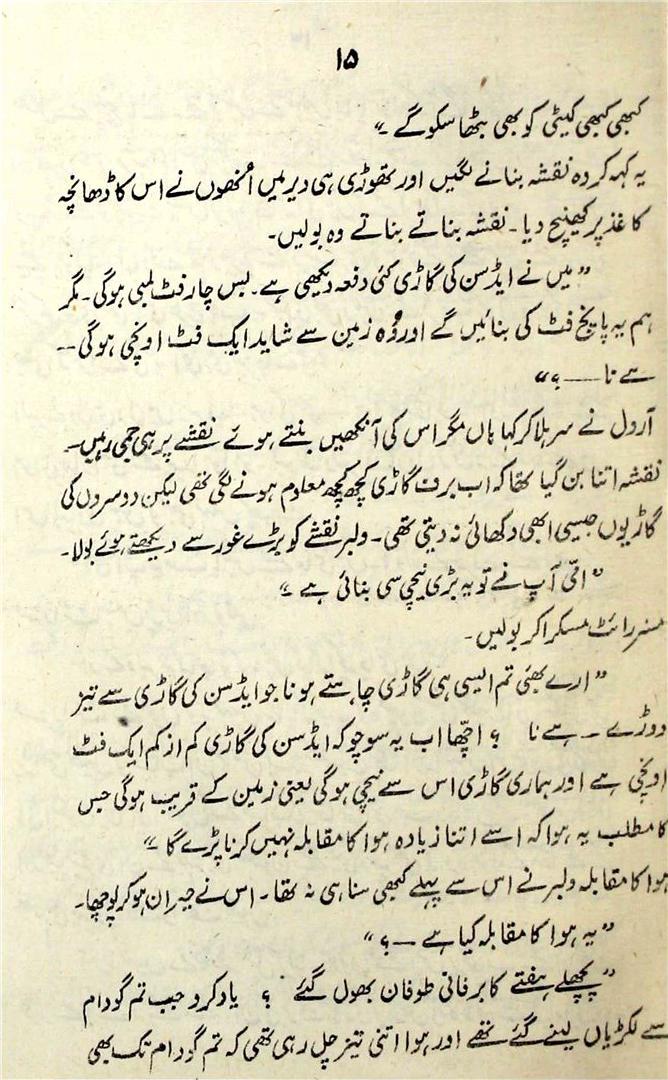 ۱۵
کبھی کبھی کیٹی کو بھی بٹھا سکو گے ۔“
یہ کہہ کر وہ نقشہ بنانے لگیں اور تھوڑی ہی دیر میں اُنھوں نے اس کا ڈھانچہ
کاغذ پر کھینچ دیا۔ نقشہ بناتے بناتے وہ بولیں۔
”میں نے ایڈسن کی گاڑی کئی دفعہ دیکھی ہے۔ بس چار فٹ لمبی ہوگی۔ مگر
ہم یہ پانچ فٹ کی بنائیں گے اور وُہ زمین سے شاید ایک فٹ اونچی ہوگی ۔۔
ہے نا ۔۔۔ ؟“
آرول نے سر ہلا کر کہا ہاں مگر اس کی آنکھیں بنتے ہوئے نقشے پر ہی جمی رہیں۔
نقشہ اتنا بن گیا تھا کہ اب برف گاڑی کچھ کچھ معلوم ہونے لگی تھی لیکن دوسروں کی
گاڑیوں جیسی ابھی دکھائی نہ دیتی تھی۔ ولبر نقشے کو بڑے غور سے دیکھتے ہوئے بولا۔
”امّی آپ نے تو یہ بڑی نیچی سی بنائی ہے ۔“
مسز رائٹ مسکرا کر بولیں۔
”ارے بھئی تم ایسی ہی گاڑی چاہتے ہو نا جو ایڈسن کی گاڑی سے تیز
دوڑے ۔ ہے نا ؟ اچھّا اب یہ سوچو کہ ایڈسن کی گاڑی کم از کم ایک فٹ
اونچی ہے اور ہماری گاڑی اس سے نیچی ہوگی یعنی زمین کے قریب ہوگی جس
کا مطلب یہ ہوا کہ اسے اتنا زیادہ ہوا کا مقابلہ نہیں کرنا پڑے گا ۔“
ہوا کا مقابلہ ولبر نے اس سے پہلے کبھی سنا ہی نہ تھا۔ اس نے حیران ہو کر پوچھا۔
”یہ ہوا کا مقابلہ کیا ہے ۔۔ ؟“
”پچھلے ہفتے کا برفانی طوفان بھول گئے ؟ یاد کرو جب تم گودام
سے لکڑیاں لینے گئے تھے اور ہوا اتنی تیز چل رہی تھی کہ تم گودام تک بھی